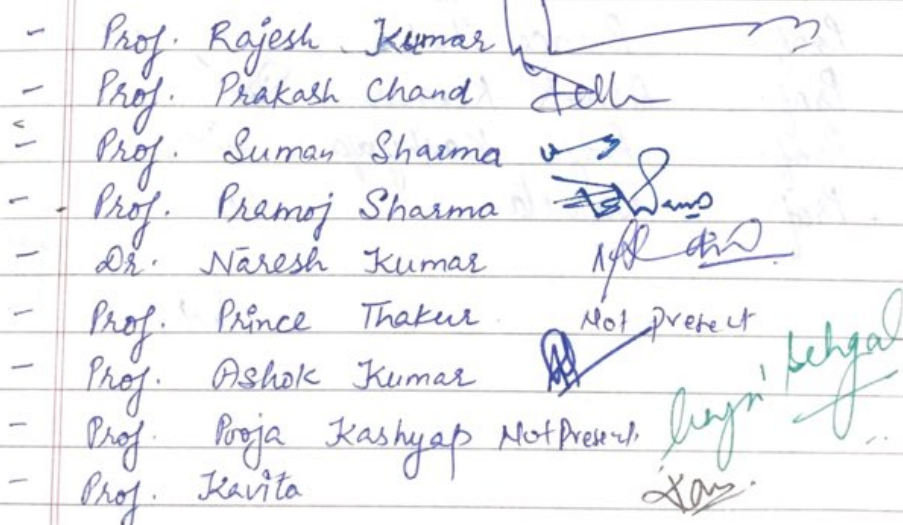 - Prof. Rajesh Kumar
- Prof. Prakash Chand
- Prof. Suman Sharma
- Prof. Pramoj Sharma
- Dr. Naresh Kumar
- Prof. Prince Thakur Not Present
- Prof. Ashok Kumar
- Prof. Pooja Kashyap Not Present
Sehgal
- Prof. Kavita